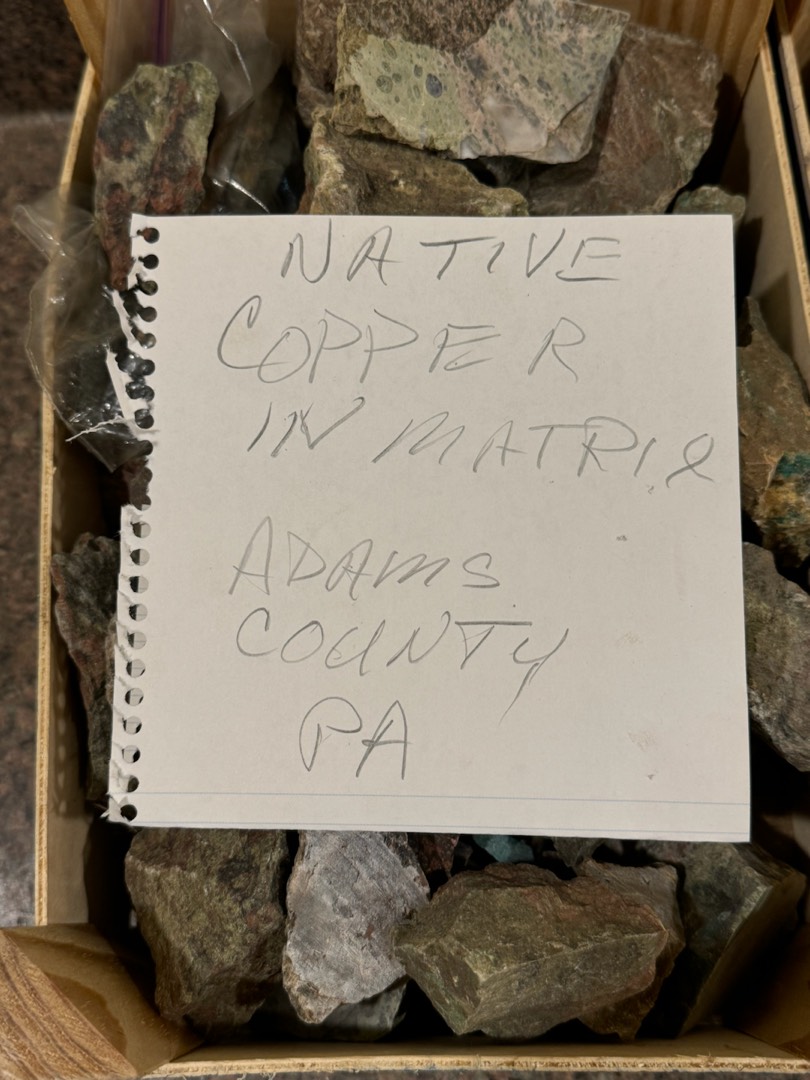 NATIVE
COPPER
IN MATRIX
ADAMS
COUNTY
PA